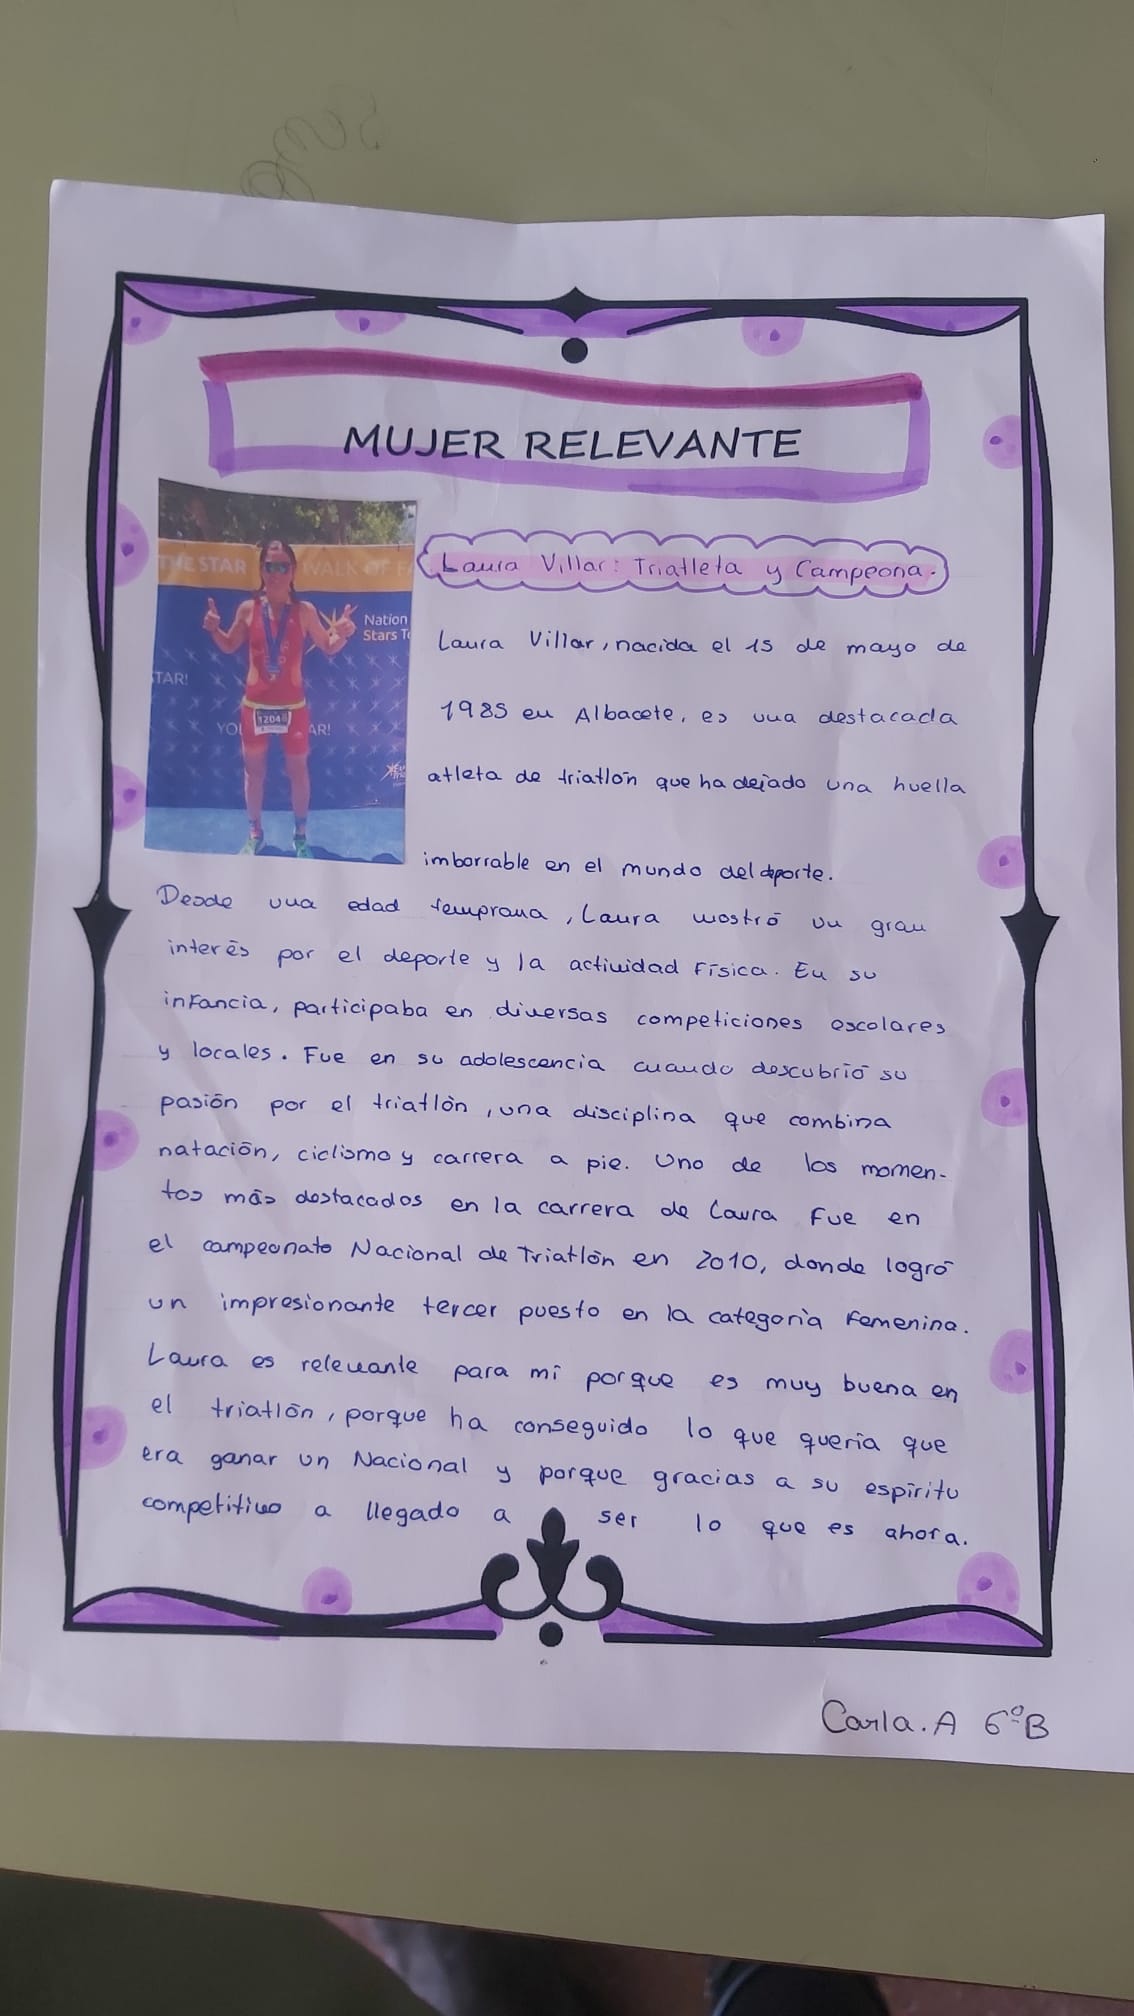 MUJER RELEVANTE
THE STAR WALK OF FA
Nation
Stars T
STAR!
YOU AR!
1204
Laura Villar: Triatleta y Campeona.
Laura Villar, nacida el 15 de mayo de
1985 en Albacete, es una destacada
atleta de triatlón que ha dejado una huella
imborrable en el mundo del deporte.
Desde una edad temprana, Laura mostró un gran
interés por el deporte y la actividad Física. En su
infancia, participaba en diversas competiciones escolares
y locales. Fue en su adolescencia cuando descubrió su
pasión por el triatlón, una disciplina que combina
natación, ciclismo y carrera a pie. Uno de los momen-
tos más destacados en la carrera de Laura Fue en
el campeonato Nacional de Triatlón en 2010, donde logró
un impresionante tercer puesto en la categoría Femenina.
Laura es relevante para mí porque es muy buena en
el triatlón, porque ha conseguido lo que quería que
era ganar un Nacional y porque gracias a su espíritu
competitivo a llegado a ser lo que es ahora.
Carla. A 6ºB